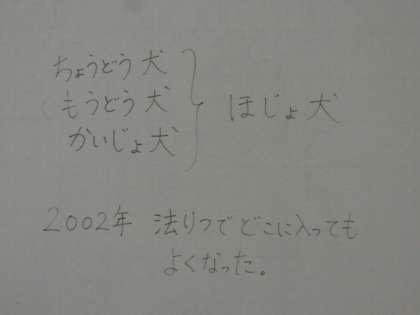 ちょうどう犬
もうどう犬
かいじょ犬
ほじょ犬
2002年 法りつでどこに入っても
よくなった。